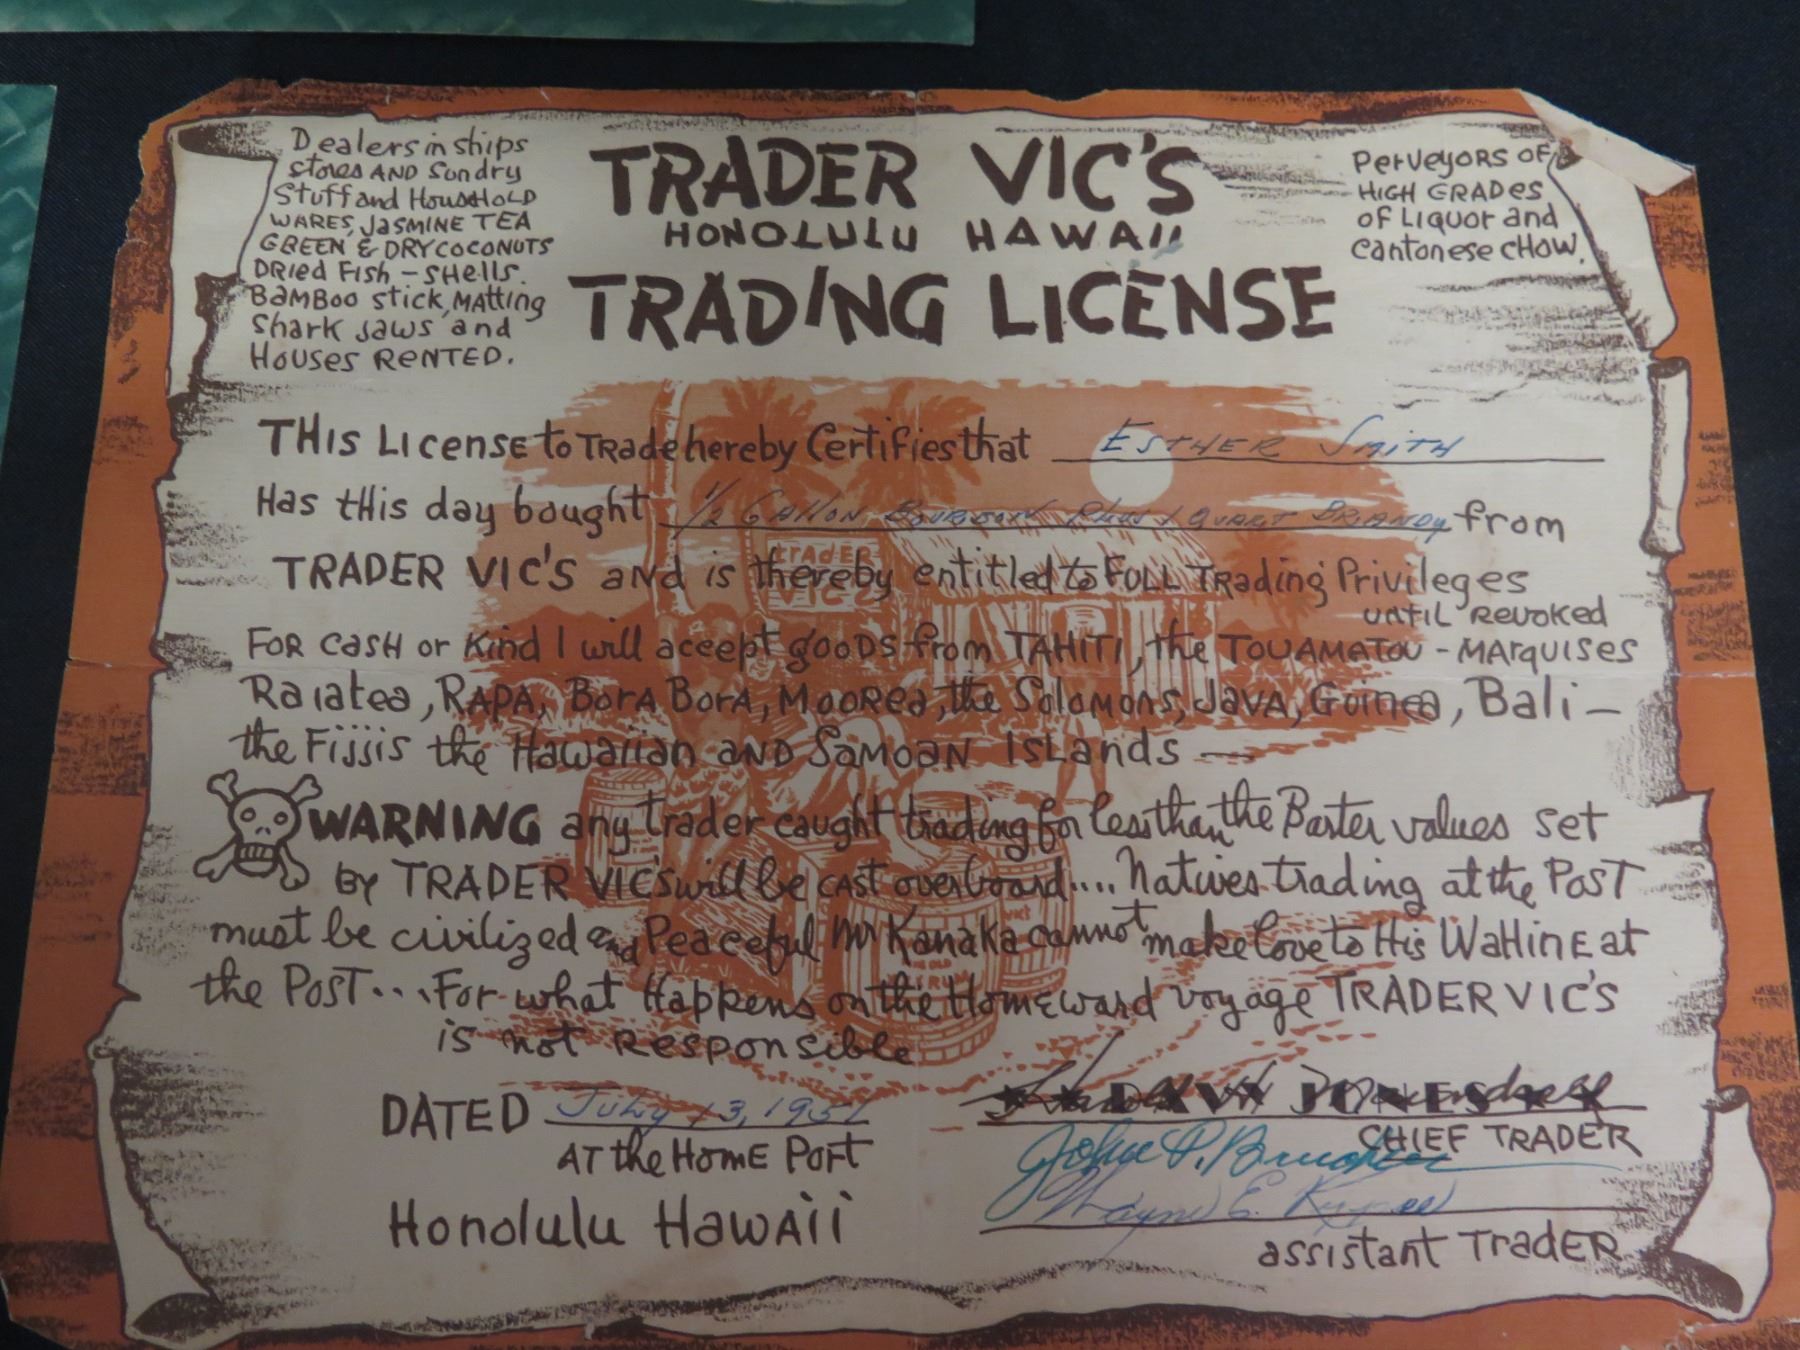 Dealers in ships
stores AND Sundry
Stuff and HousEHOLD
WARES, JASMINE TEA
GREEN & DRY COCONUTS
DRied Fish - SHells.
BAMBoo stick, MAtting
Shark Jaws and
HOUSES RENTED.
TRADER VIC'S
HONOLULU HAWAII
TRADING LICENSE
PerVeyORS OF
HIGH GRADes
of Liquor and
Cantonese CHOW.
THIS LICENSE to TRAde hereby Certifies that ESTHER SMITH
Has this day bought 1/2 GALLON BOURBON PLUS 1 QUART BRANDY from
TRADER VIC'S and is thereby entitled to FULL Trading Privileges
until revoked
FOR CASH or Kind I will accept goods from TAHITI, the TOUAMATOU - MARquises
Raiatea, RAPA, BORA BORA, MOOREa, the Solomons, JAVA, Guinea, Bali -
the Fijjis the Hawaiian AND SAMOAN ISLands -
WARNING any trader caught trading for less than the Barter values set
by TRADER VIC'S will be cast overboard.... Natives trading at the POST
must be civilized and Peaceful Mr Kanaka cannot make love to His WAHINE at
the POST.... For what Happens on the Homeward voyage TRADER VIC'S
is not Responsible
DATED July 13, 1951
AT the HOME PORT
Honolulu HAWAii
DAVY JONES
CHIEF TRADER
John P.
Wayne E.
assistant TradER
TRADER
VIC'S
OLD
RUM